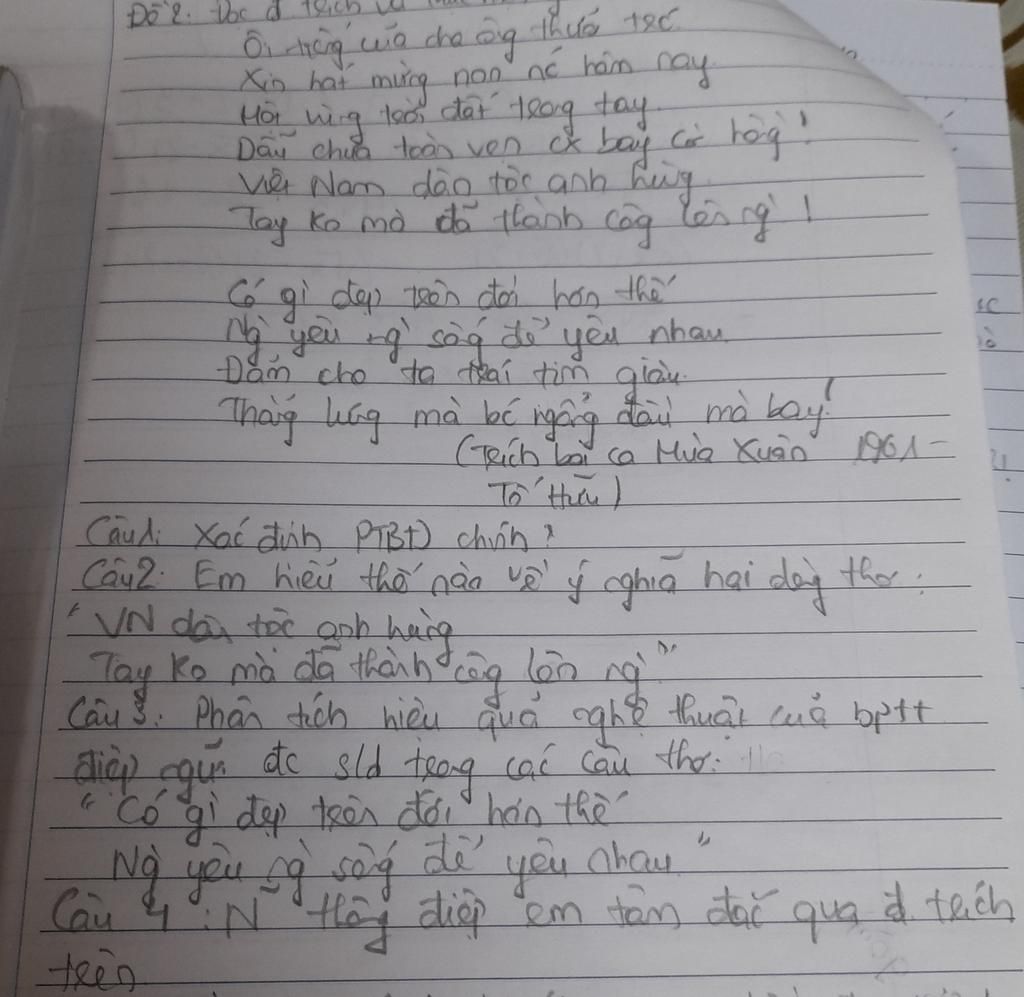 Đề 2: Đọc đ trích và
Ôi tiếng của cha ông thuở trc
Xin hát mừng non nc hôm nay
Một vùng trời đất trong tay
Dẫu chưa toàn vẹn cx bay cờ hồng!
Việt Nam dân tộc anh hùng
Tay ko mà đã thành công lên ng!
Có gì đẹp trên đời hơn thế
Ng yêu ng sống để yêu nhau
Đảm cho ta trái tim giàu
Thẳng lưng mà bc ngẩng đầu mà bay!
(Trích bài ca Mùa Xuân 1961 -
Tố Hữu)
Câu 1: Xác định PTBĐ chính?
Câu 2: Em hiểu thế nào về ý nghĩa hai dòng thơ:
"VN dân tộc anh hùng
Tay ko mà đã thành công lên ng"
Câu 3: Phân tích hiệu quả nghệ thuật của bptt
điệp ngữ đc sld trong các câu thơ:
"Có gì đẹp trên đời hơn thế
Ng yêu ng sống để yêu nhau"
Câu 4: N~ thông điệp em tâm đắc qua đ. trích
trên